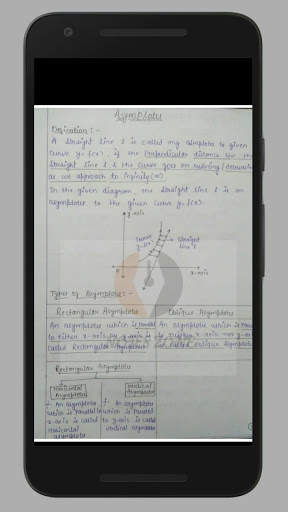 Asymptote
Definition :-
A straight line l is called an asymptote to given
curve y=f(x), if the perpendicular distance b/w the
straight line l & the curve goes on reducing / decreasing
as we approach to infinity (∞)
In the given diagram, the straight line l is an
asymptotes to the given curve y=f(x).
y-axis
curve
y=f(x)
straight
line l
O
x-axis
Types of Asymptote :-
Rectangular Asymptote
Oblique Asymptote
An asymptote which is parallel
to either x-axis or y-axis is
called Rectangular Asymptote
An asymptote which is
neither x-axis nor y-axis
is called oblique Asymptote
Rectangular Asymptote
Horizontal
Asymptote
Vertical
Asymptote
An asymptote
which is parallel to
x-axis is called
Horizontal
asymptote
An asymptote
which is parallel
to y-axis is called
vertical asymptote